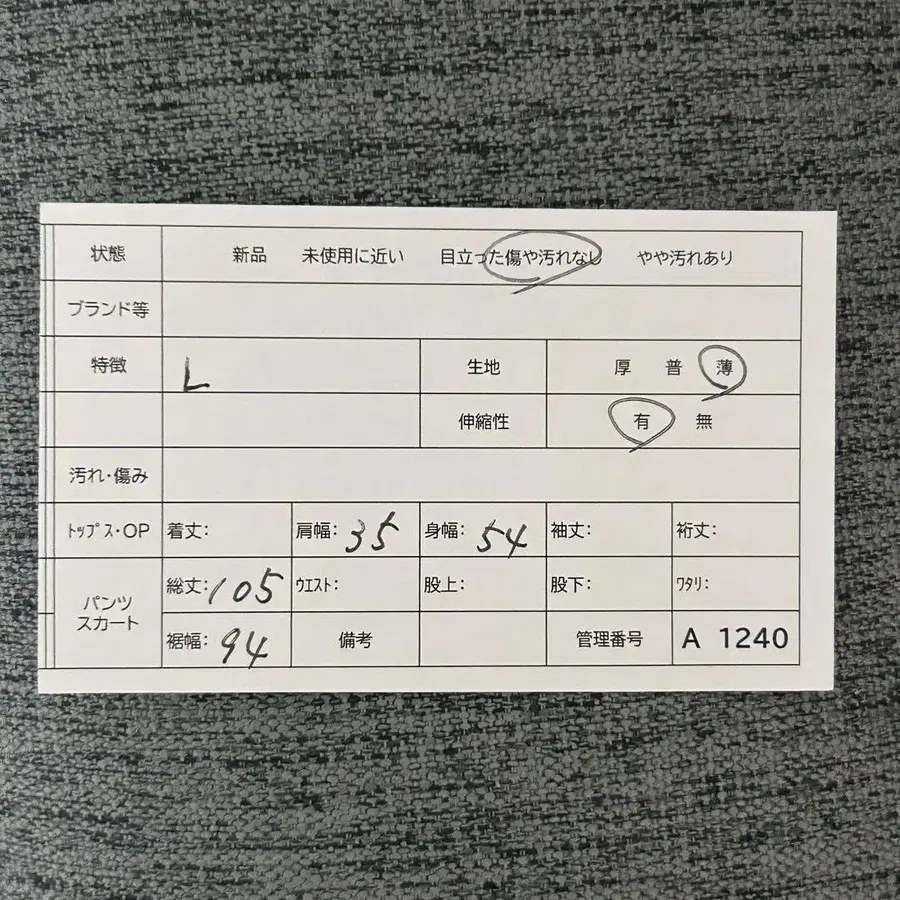 状態 新品 未使用に近い 目立った傷や汚れなし やや汚れあり
ブランド等
特徴 L 生地 厚 普 薄
伸縮性 有 無
汚れ・傷み
トップス・OP 着丈: 肩幅: 35 身幅: 54 袖丈: 裄丈:
パンツ スカート 総丈: 105 ウエスト: 股上: 股下: ワタリ:
裾幅: 94 備考 管理番号 A 1240